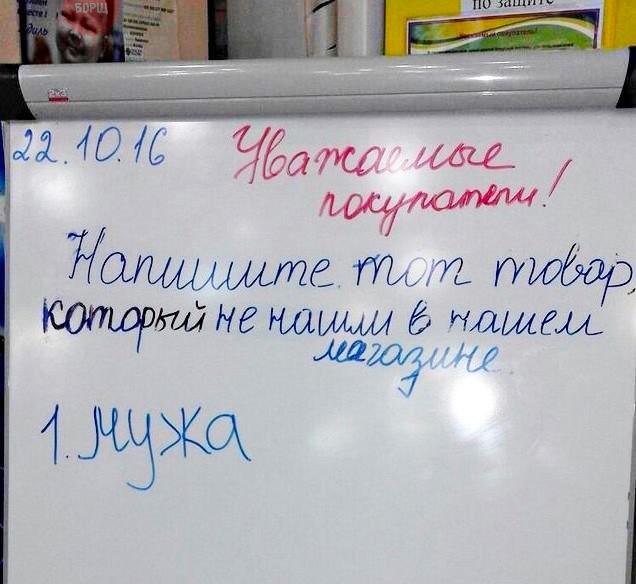 БОРЩ
по защите
22.10.16
Уважаемые
покупатели!
Напишите тот товар,
который не нашли в нашем
магазине.
1. Мужа